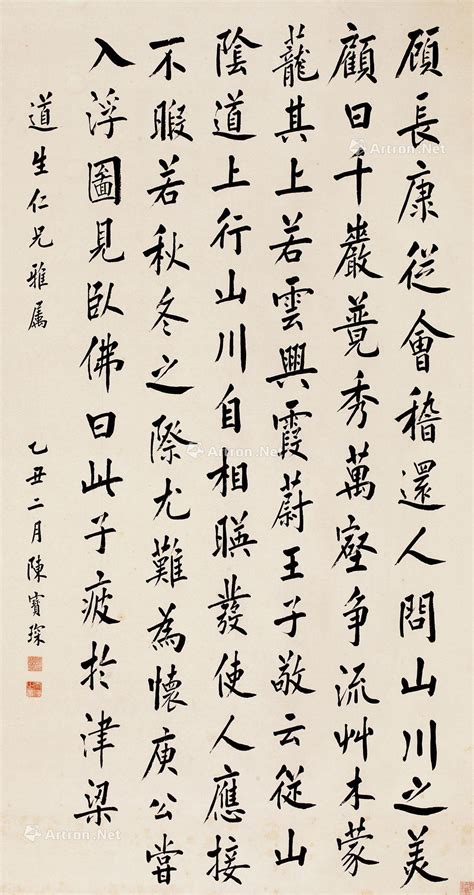 顧長康從會稽還人問山川之美
顧曰千巖競秀萬壑爭流艸木蒙
蘢其上若雲興霞蔚王子敬云從山
陰道上行山川自相暎發使人應接
不暇若秋冬之際尤難為懷庾公嘗
入浮圖見臥佛曰此子疲於津梁
道生仁兄雅屬
乙丑二月陳寶琛
Artron.Net
Artron.Net
Artron.Net
Artron.Net
Artron.Net